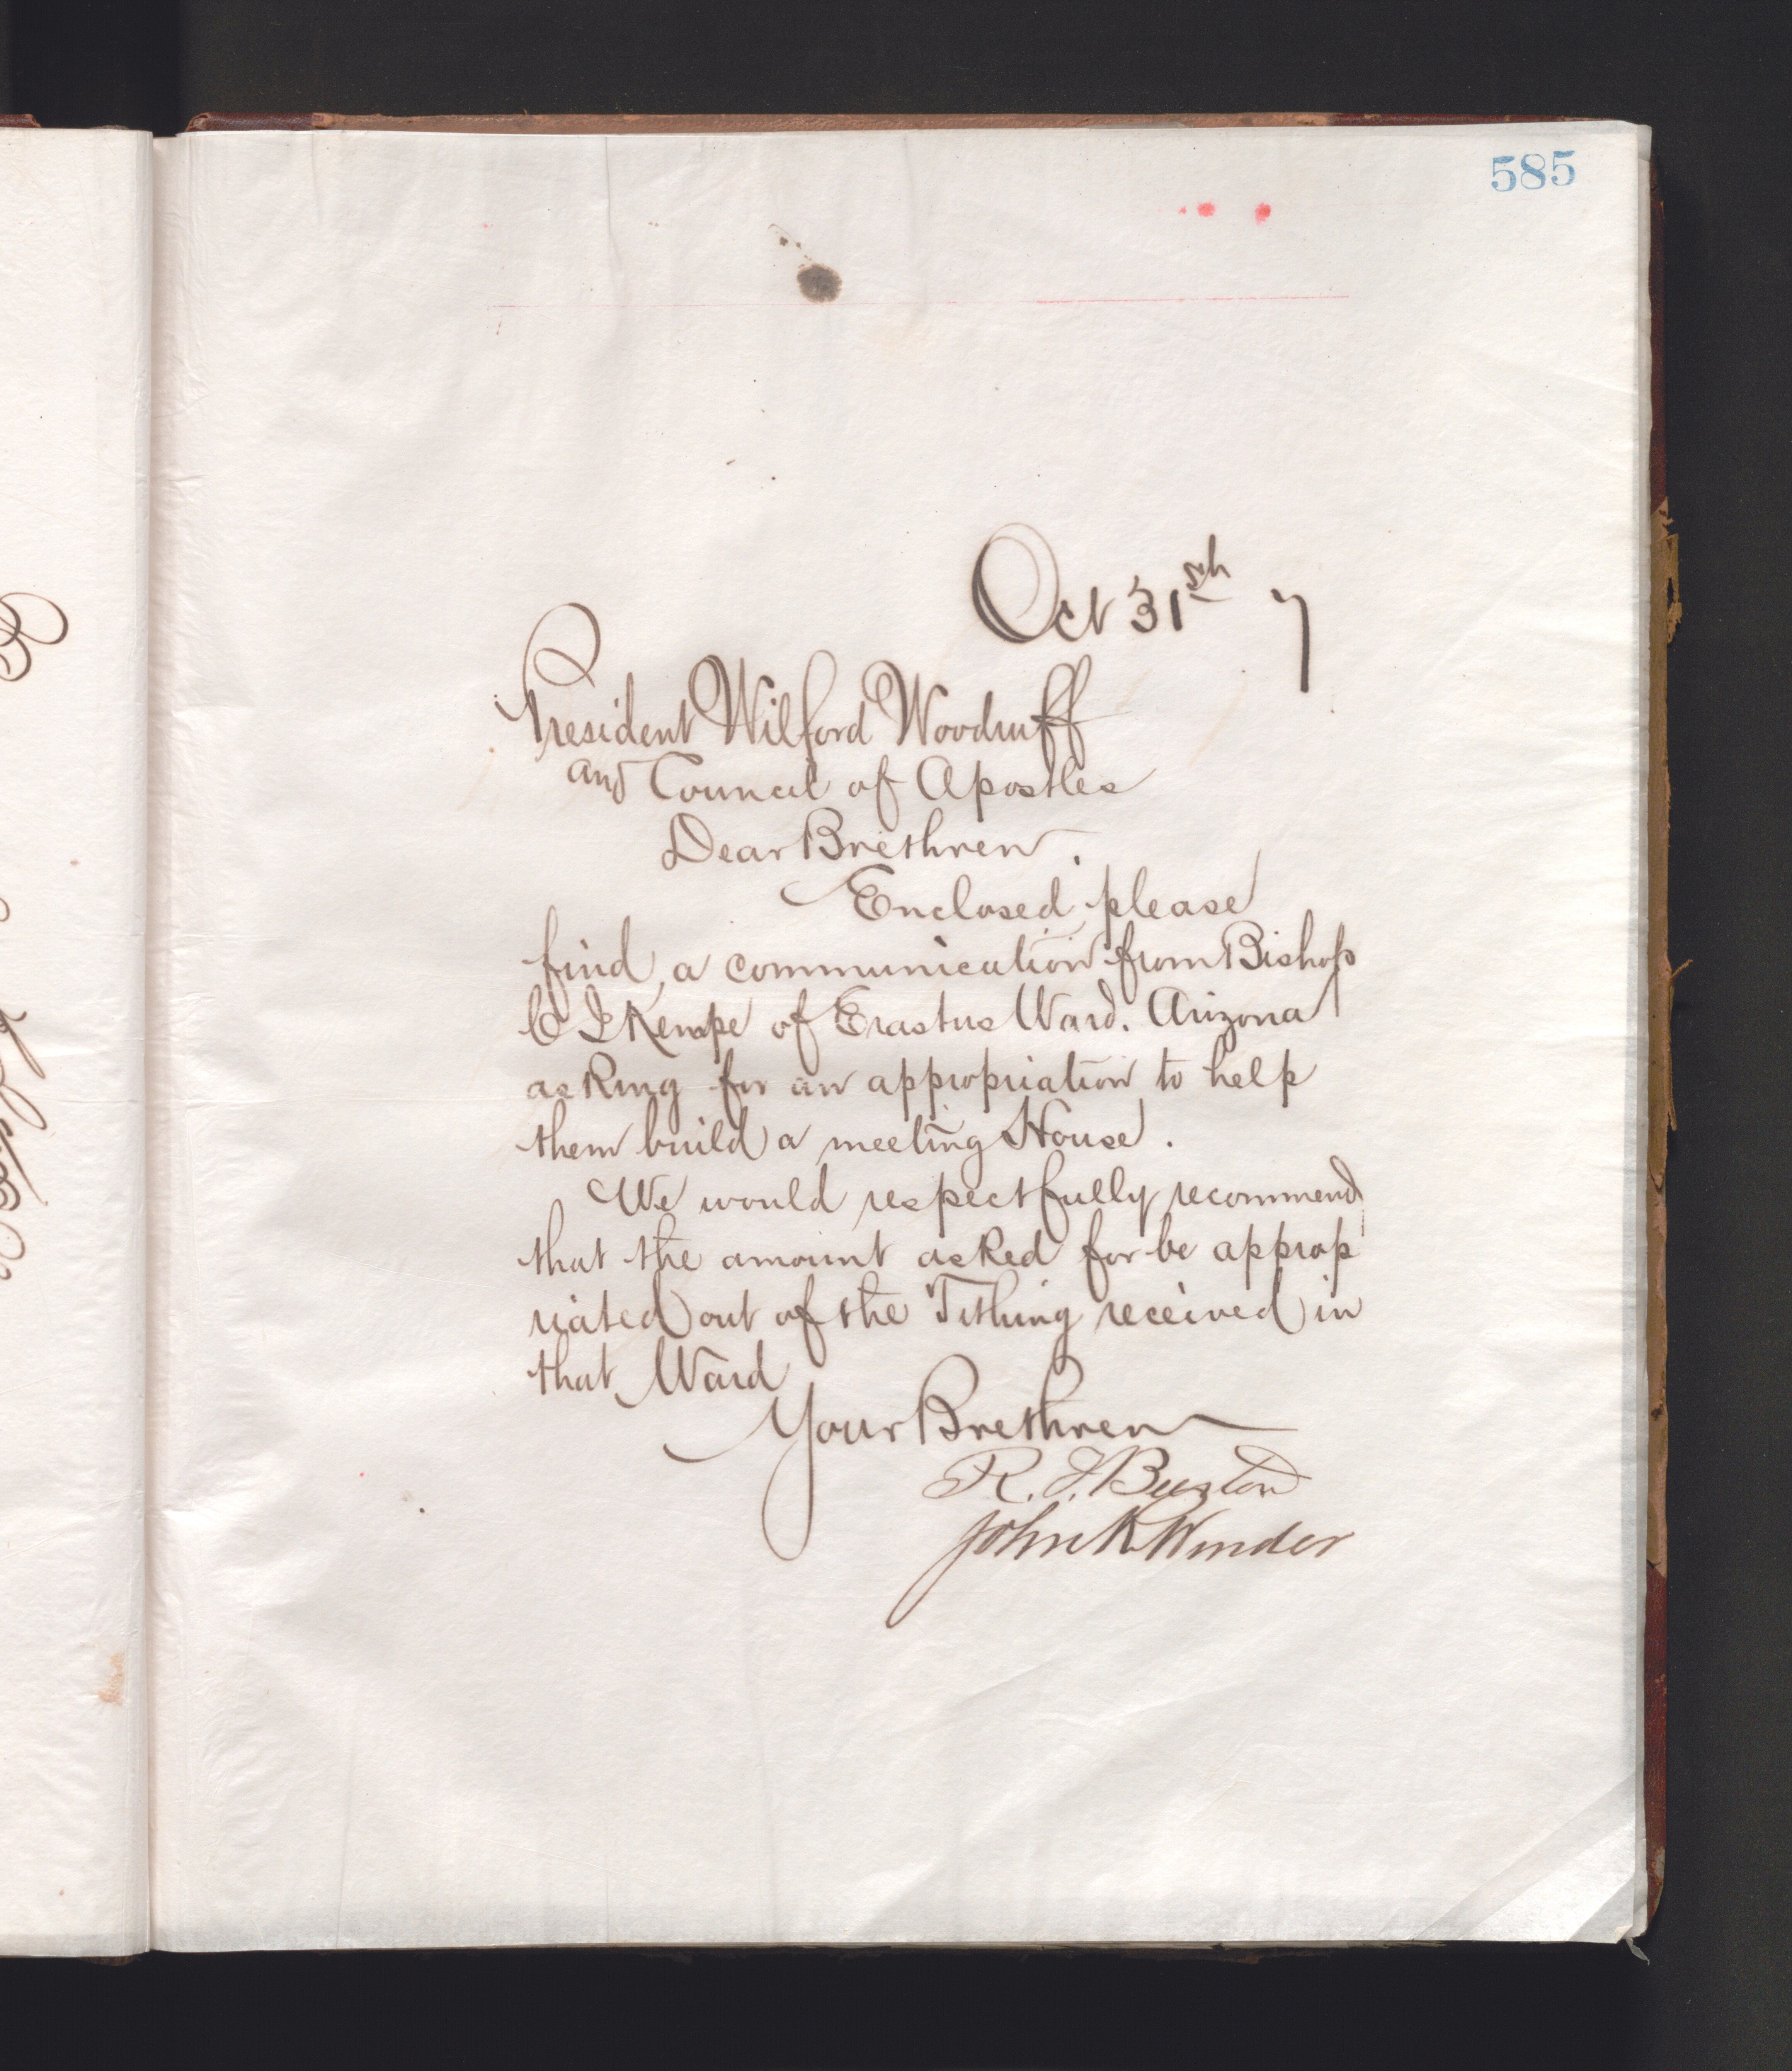 585
Oct 31sth 7
President Wilford Woodruff
and Council of Apostles
Dear Brethren.
Enclosed please
find, a communication from Bishop
C I Kempe of Erastus Ward. Arizona
asking for an appropriation to help
them build a meeting House.
We would respectfully recommend
that the amount asked for be approp
riated out of the Tithing received in
that Ward
Your Brethren
R. T. Burton
John R Winder